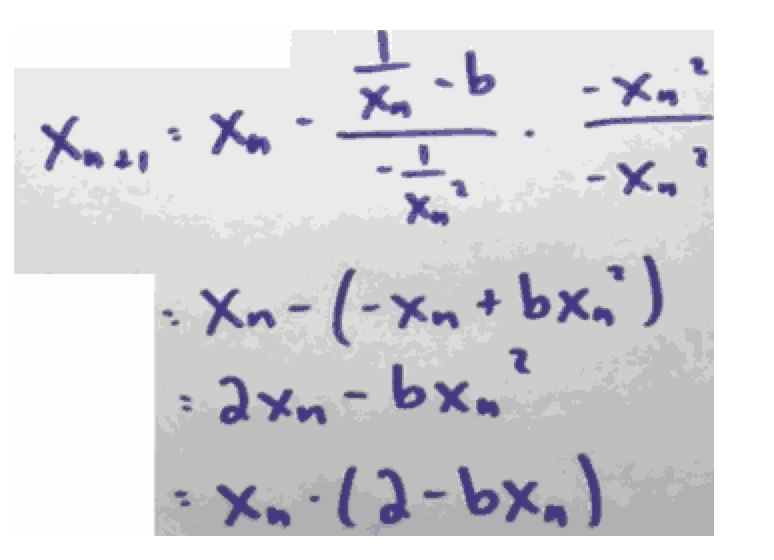 xₙ₊₁ = xₙ - (1/xₙ - b)/(-1/xₙ²) · (-xₙ²)/(-xₙ²)
= xₙ - (-xₙ + bxₙ²)
= 2xₙ - bxₙ²
= xₙ · (2 - bxₙ)